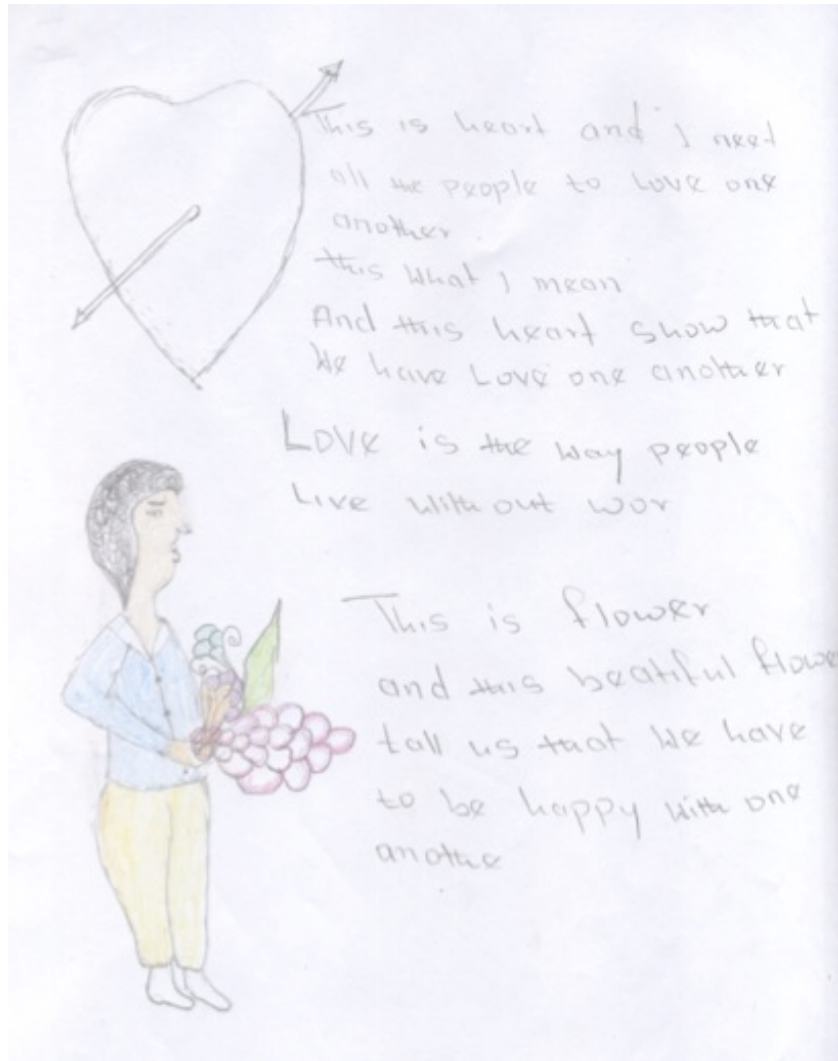 This is heart and I need
all the people to Love one
another.
this what I mean
And this heart show that
We have Love one another
Love is the way people
Live without wor
This is flower
and this beatiful flowe
tall us that We have
to be happy with one
anothe